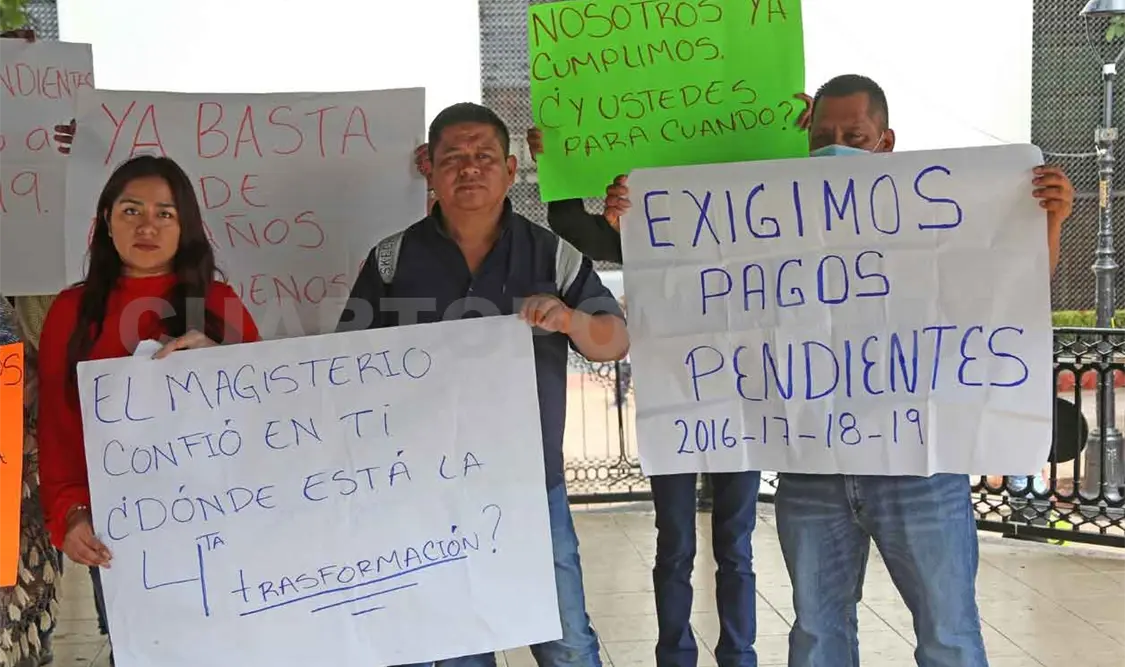 NDIENTES
19.
YA BASTA
DE
AÑOS
UENOS
NOSOTROS YA
CUMPLIMOS.
¿Y USTEDES
PARA CUANDO?
EXIGIMOS
PAGOS
PENDIENTES
2016-17-18-19
EL MAGISTERIO
CONFIÓ EN TI
¿DÓNDE ESTÁ LA
4TA
trASFORMACIÓN?
OS
SKE
CUARTO